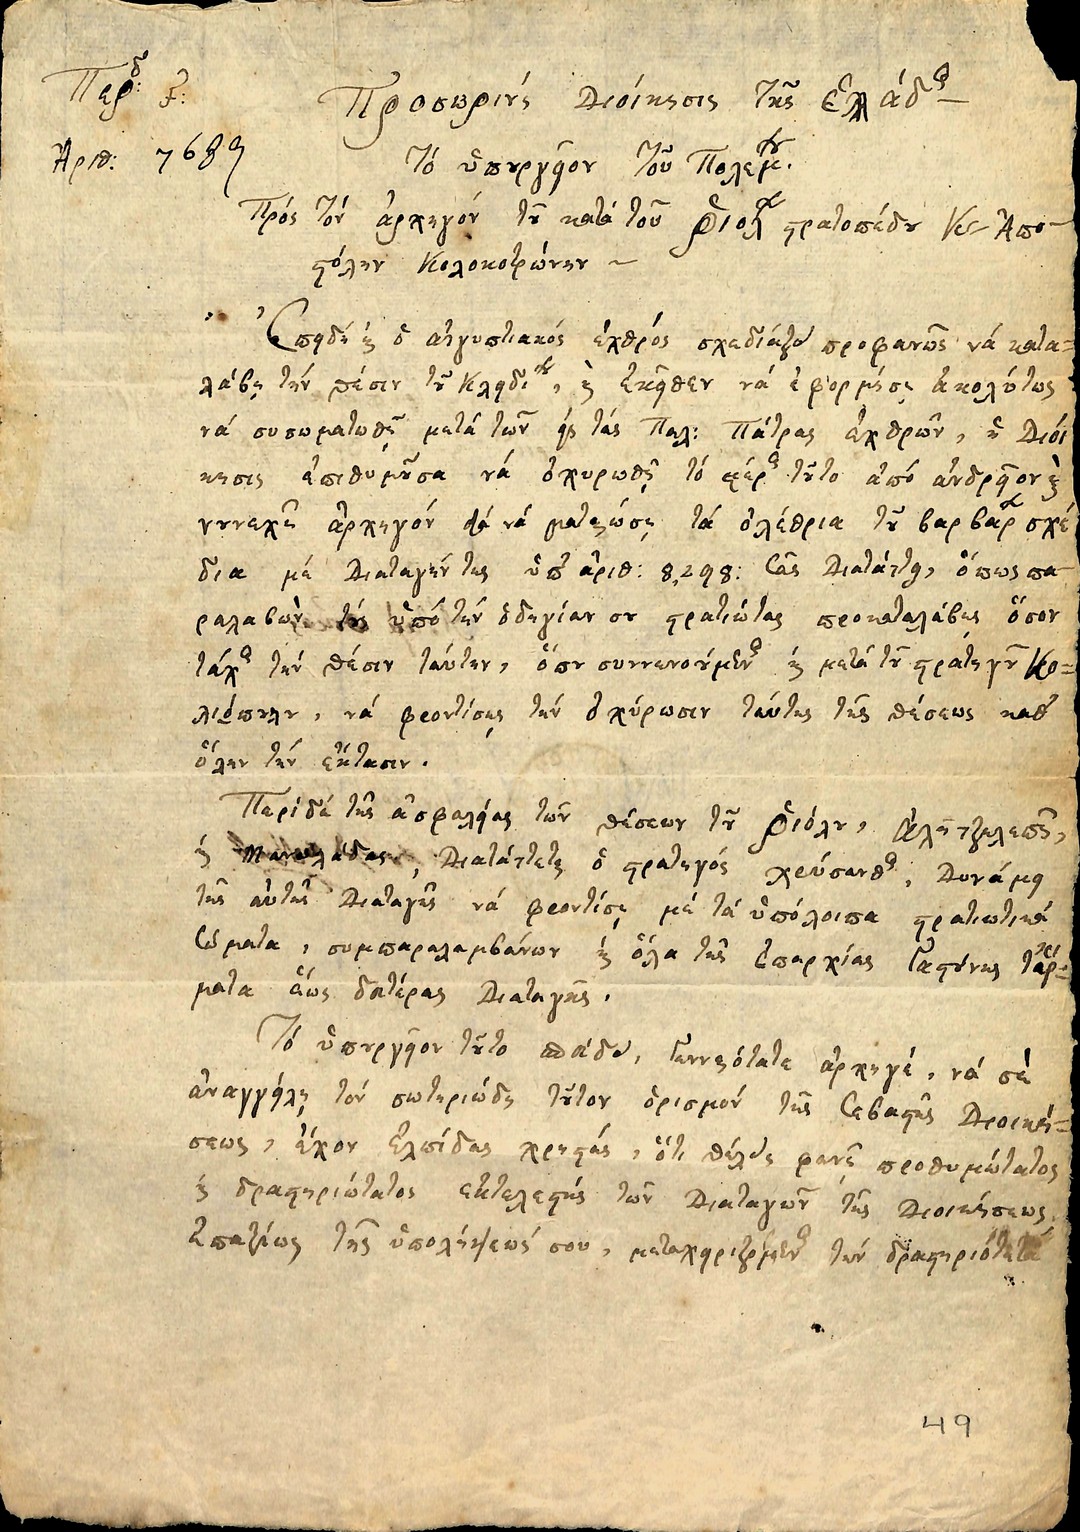 Περδ: Γ:
Προσωρινή Διοίκησις τῆς Ἑλλάδος
Ἀριθ: 7689
Τὸ ὑπουργεῖον τοῦ Πολέμου.
Πρὸς τὸν ἀρχηγὸν τοῦ κατὰ τοῦ Ριόλου στρατοπέδου Κ. Ἀπο-
στόλην Κολοκοτρώνην
Ἐπειδὴ καὶ ὁ αἰγυπτιακὸς ἐχθρὸς σχεδιάζει προφανῶς νὰ κατα=
λάβῃ τὴν θέσιν τοῦ Κλειδίου, καὶ ἐκεῖθεν νὰ ἐφορμήσῃ ἀκολύτως
νὰ συσωματωθῇ μετὰ τῶν εἰς τὰς Παλ: Πάτρας ἐχθρῶν, ἡ Διοί
κησις ἐπιθυμοῦσα νὰ ὀχυρωθῇ τὸ μέρος τοῦτο ἀπὸ ἀνδρεῖον καὶ
γενναῖον ἀρχηγὸν διὰ νὰ ματαιώσῃ τὰ ὀλέθρια τοῦ βαρβάρου σχέ
δια μὲ Διαταγήν της ὑπ' ἀριθ: 8,298: Σᾶς Διατάττει, ὅπως πα-
ραλαβὼν τοὺς ὑπὸ τὴν ὁδηγίαν σου στρατιώτας προκαταλάβῃς ὅσον
τάχος τὴν θέσιν ταύτην, ὅπου συννενοούμενος καὶ μετὰ τοῦ στρατηγοῦ Κο=
λιόπουλου, νὰ φροντίσῃς τὴν ὀχύρωσιν ταύτης τῆς θέσεως καθ'
ὅλην τὴν ἔκτασιν.
Περὶ δὲ τῆς ἀσφαλείας τῶν θέσεων τοῦ Ριόλου, Ἀλητζελεπῆ,
καὶ Μανωλάδας, Διατάττεται ὁ στρατηγὸς Χρύσανθος, Δυνάμει
τῆς αὐτῆς Διαταγῆς νὰ φροντίσῃ μὲ τὰ ὑπόλοιπα στρατιωτικὰ
Σώματα, συμπαραλαμβάνων καὶ ὅλα τῆς ἐπαρχίας Γαστούνης τὰ ἅρ=
ματα ἕως δευτέρας Διαταγῆς.
Τὸ ὑπουργεῖον τοῦτο σπεύδει, Γενναιότατε ἀρχηγέ, νὰ σὲ
ἀναγγείλῃ τὸν σωτηριώδη τοῦτον ὁρισμὸν τῆς Σεβαστῆς Διοική=
σεως, ἔχον ἐλπίδας χρηστάς, ὅτι θέλεις φανῇ προθυμώτατος
καὶ δραστηριώτατος ἐκτελεστὴς τῶν Διαταγῶν τῆς Διοικήσεως
ἐπαξίως τῆς ὑπολήψεώς σου, μεταχειριζόμενος τὴν δραστηριότητα
49